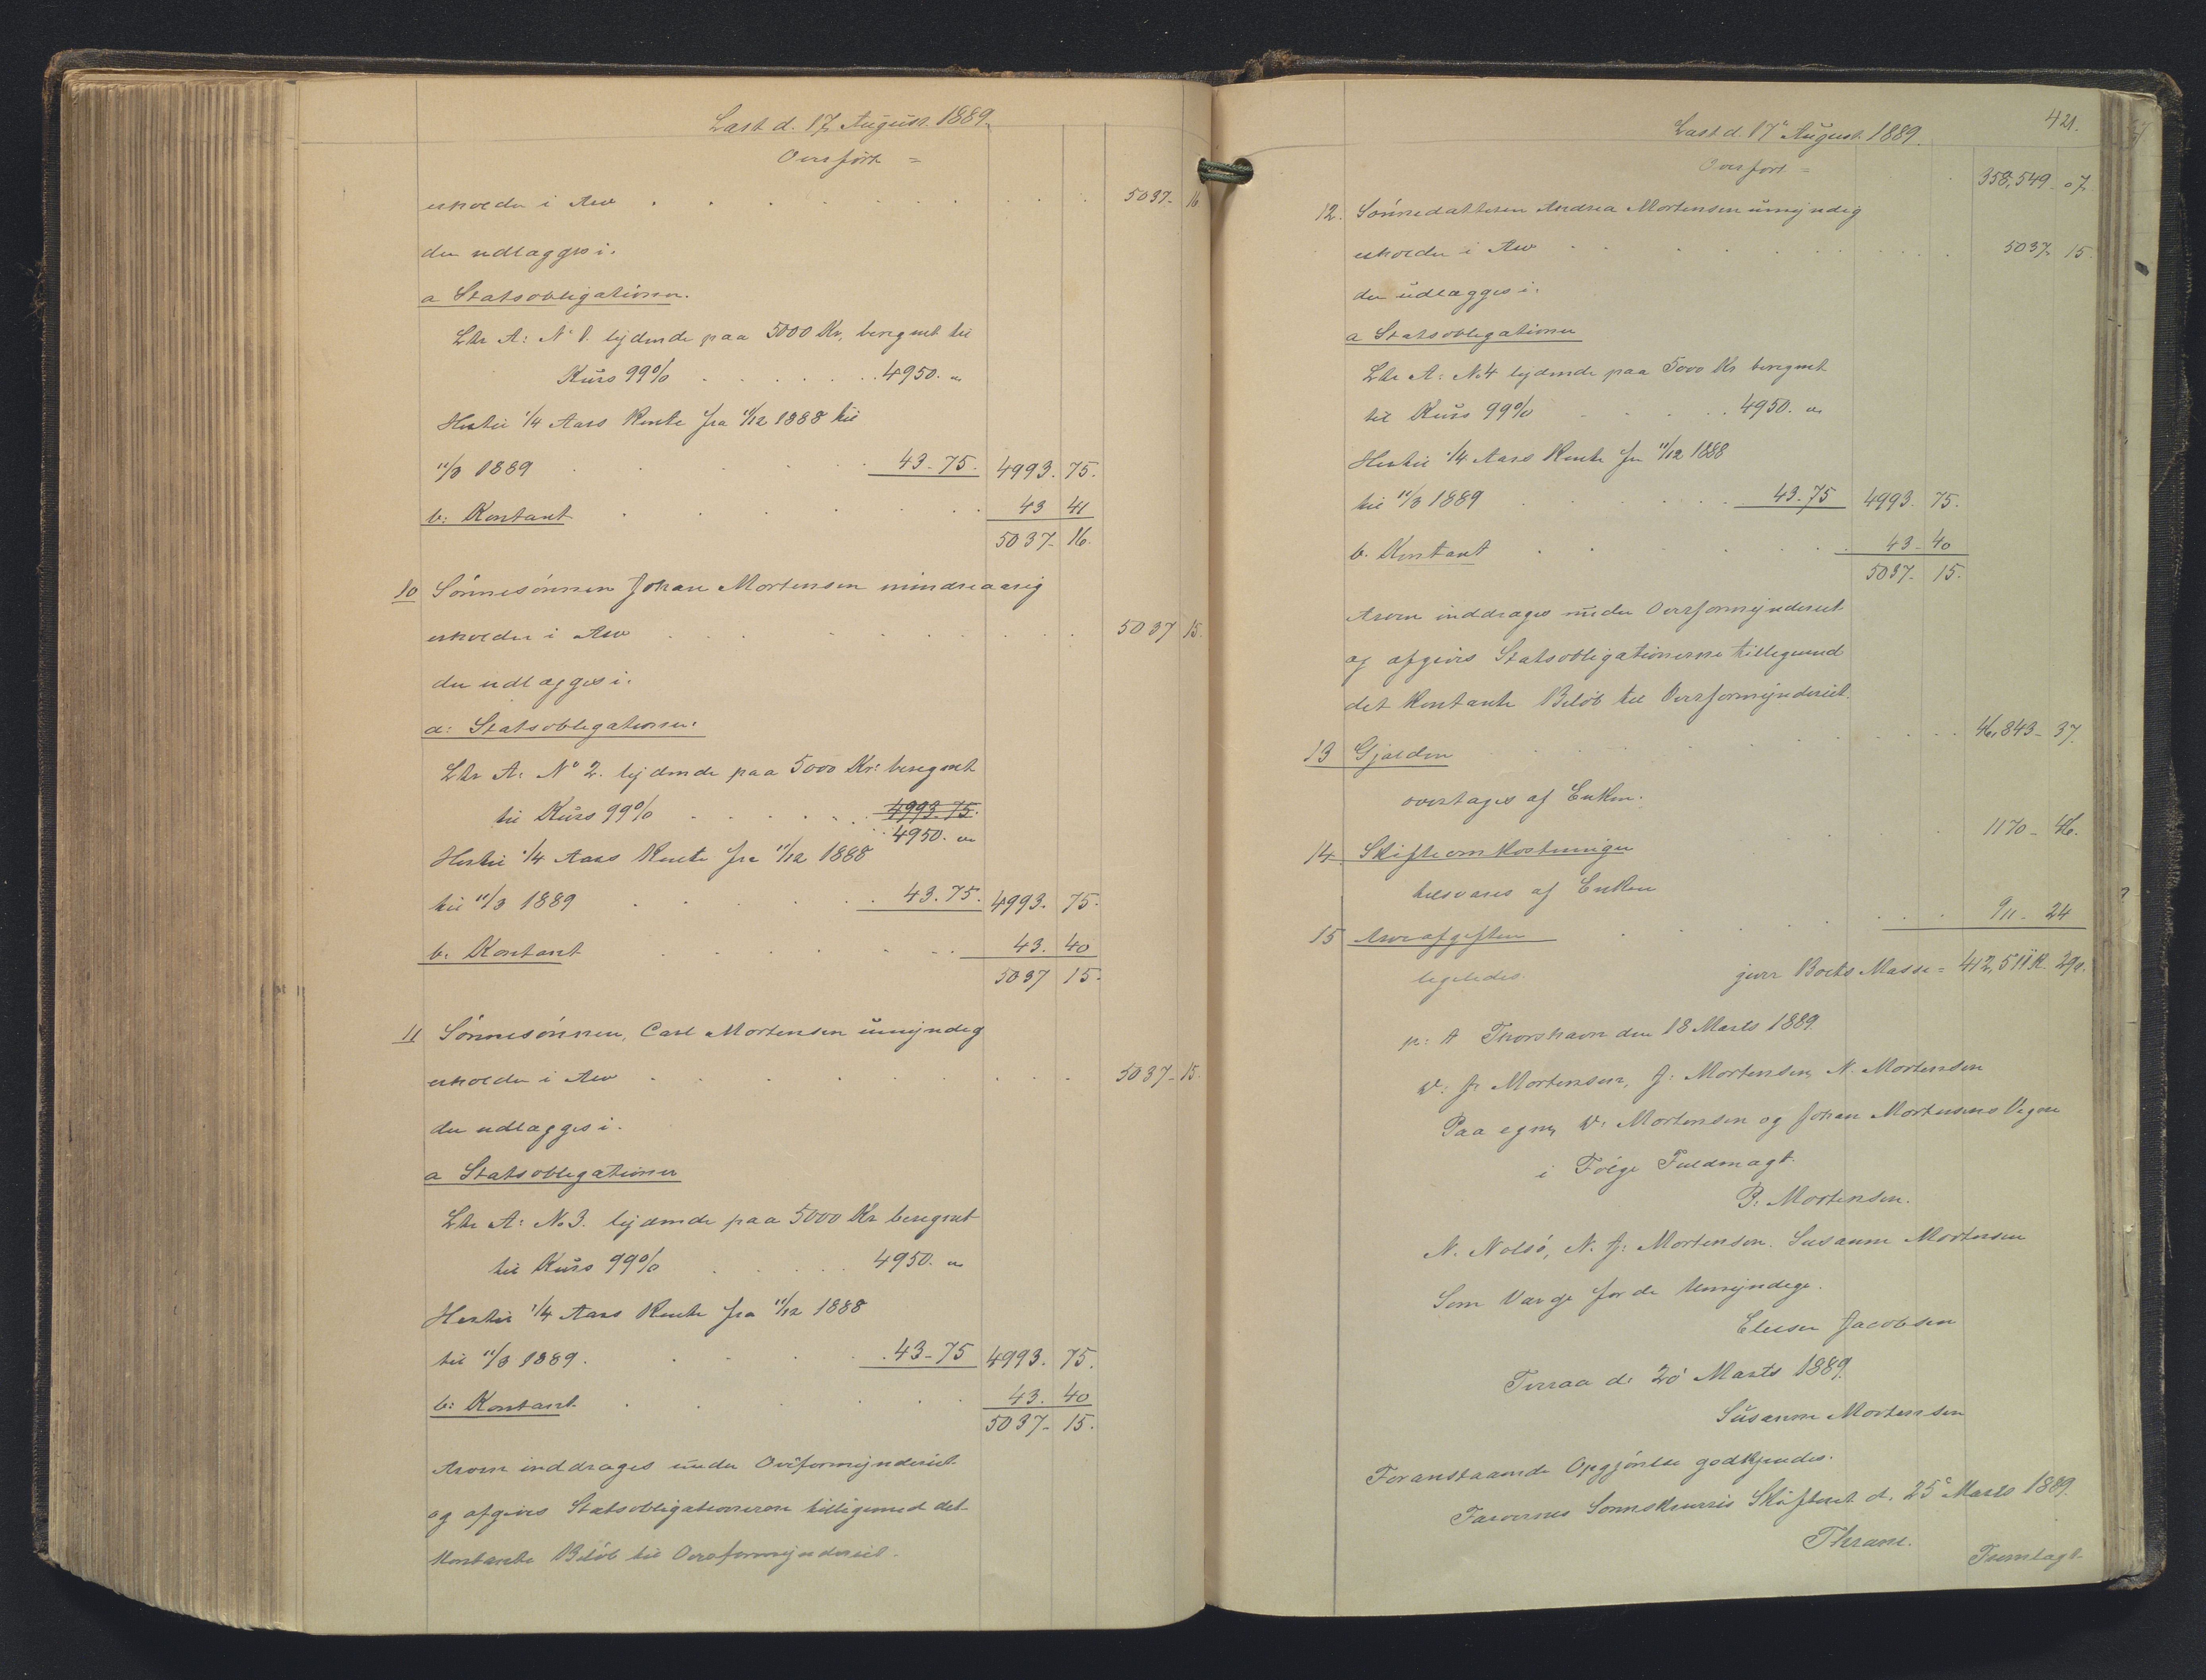 Læst d. 17 August 1889.
Overført =
erholder i Arv . . . 5037- 16
der udlægges i.
a Statsobligationer.
Ltr A: No 1. lydende paa 5000 Kr, beregnet til
Kurs 99% . . . 4950. "
Hertil 1/4 Aars Rente fra 11/12 1888 til
11/3 1889 . . . 43-75. 4993. 75.
b: Kontant . . . 43 41
5037- 16.
10 Sønnesønnen Johan Mortensen mindreaarig
erholder i Arv . . . 5037 15.
der udlægges i.
a: Statsobligationer:
Ltr A: No 2. lydende paa 5000 Kr: beregnet
til Kurs 99% . . . 4993.75.
4950. "
Hertil 1/4 Aars Rente fra 11/12 1888
til 11/3 1889 . . . 43.75. 4993. 75.
b. Kontant . . . 43. 40
5037 15.
11 Sønnesønnen, Carl Mortensen umyndig
erholder i Arv . . . 5037- 15.
der udlægges i.
a Statsobligationer
Ltr A: No 3. lydende paa 5000 Kr beregnet
til Kurs 99% . . . 4950. "
Hertil 1/4 Aars Rente fra 11/12 1888
til 11/3 1889. . . . 43-75 4993. 75.
b: Kontant . . . 43. 40
5037- 15.
Arven inddrages under Overformynderiet
og afgives Statsobligationerne tilligemed det
kontante Beløb til Overformynderiet.
421.
Læst d. 17 August 1889.
Overført = 358,549. 07
12. Sønnedatteren Andrea Mortensen umyndig
erholder i Arv . . . 5037- 15.
der udlægges i.
a Statsobligationer
Ltr A: No 4 lydende paa 5000 Kr beregnet
til Kurs 99% . . . 4950. "
Hertil 1/4 Aars Rente fra 11/12 1888
til 11/3 1889 . . . 43.75 4993. 75.
b. Kontant . . . 43- 40
5037- 15.
Arven inddrages under Overformynderiet
og afgives Statsobligationerne tilligemed
det kontante Beløb til Overformynderiet.
13 Gjælden . . . 46,843- 37.
overtages af Enken.
14. Skifteomkostninger . . . 1170- 46.
tilsvares af Enken
15 Arveafgiften . . . 911- 24
ligeledes. giver Boets Masse = 412,511 K. 29 ø.
p: t Thorshavn den 18 Marts 1889.
W: J: Mortensen, J: Mortensen, N. Mortensen
Paa egne, W: Mortensen og Johan Mortensens Vegne
i Følge Fuldmagt.
P: Mortensen.
N. Nolsø, N. J: Mortensen. Susanne Mortensen
Som Værge for de Umyndige.
Elieser Jacobsen
Tveraa d. 20 Marts 1889.
Susanne Mortensen
Foranstaaende Opgjørelse godkjendes.
Færøernes Sorenskriveris Skifteret d. 25 Marts 1889.
Thrane.
Fremlagt